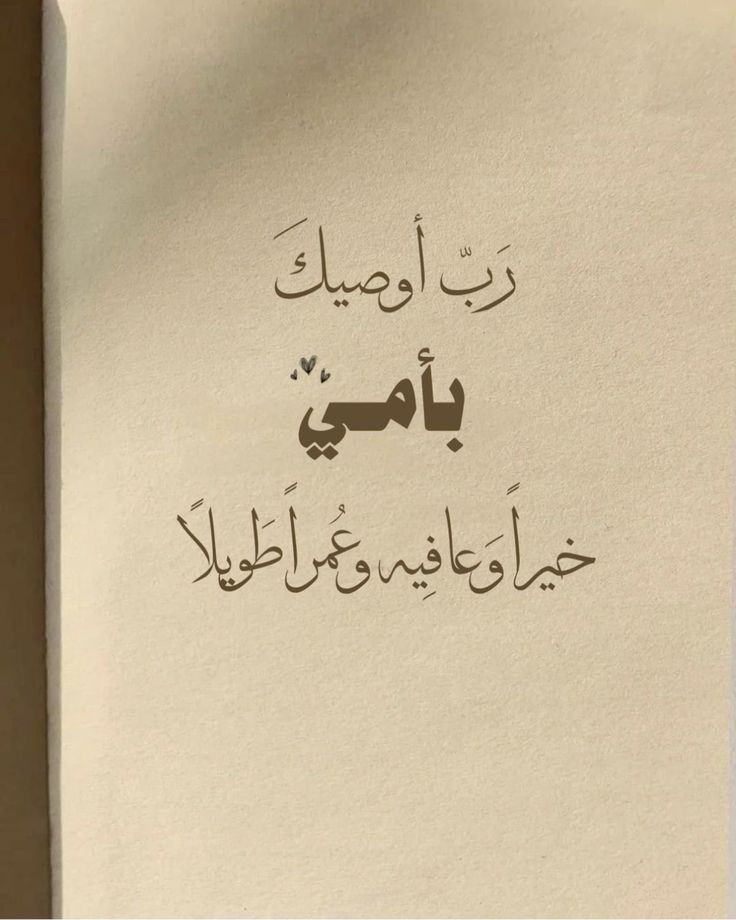 رَبّ أوصيكَ
بأمي
خيراً وَعافِيه وعُمراً طَويلاً